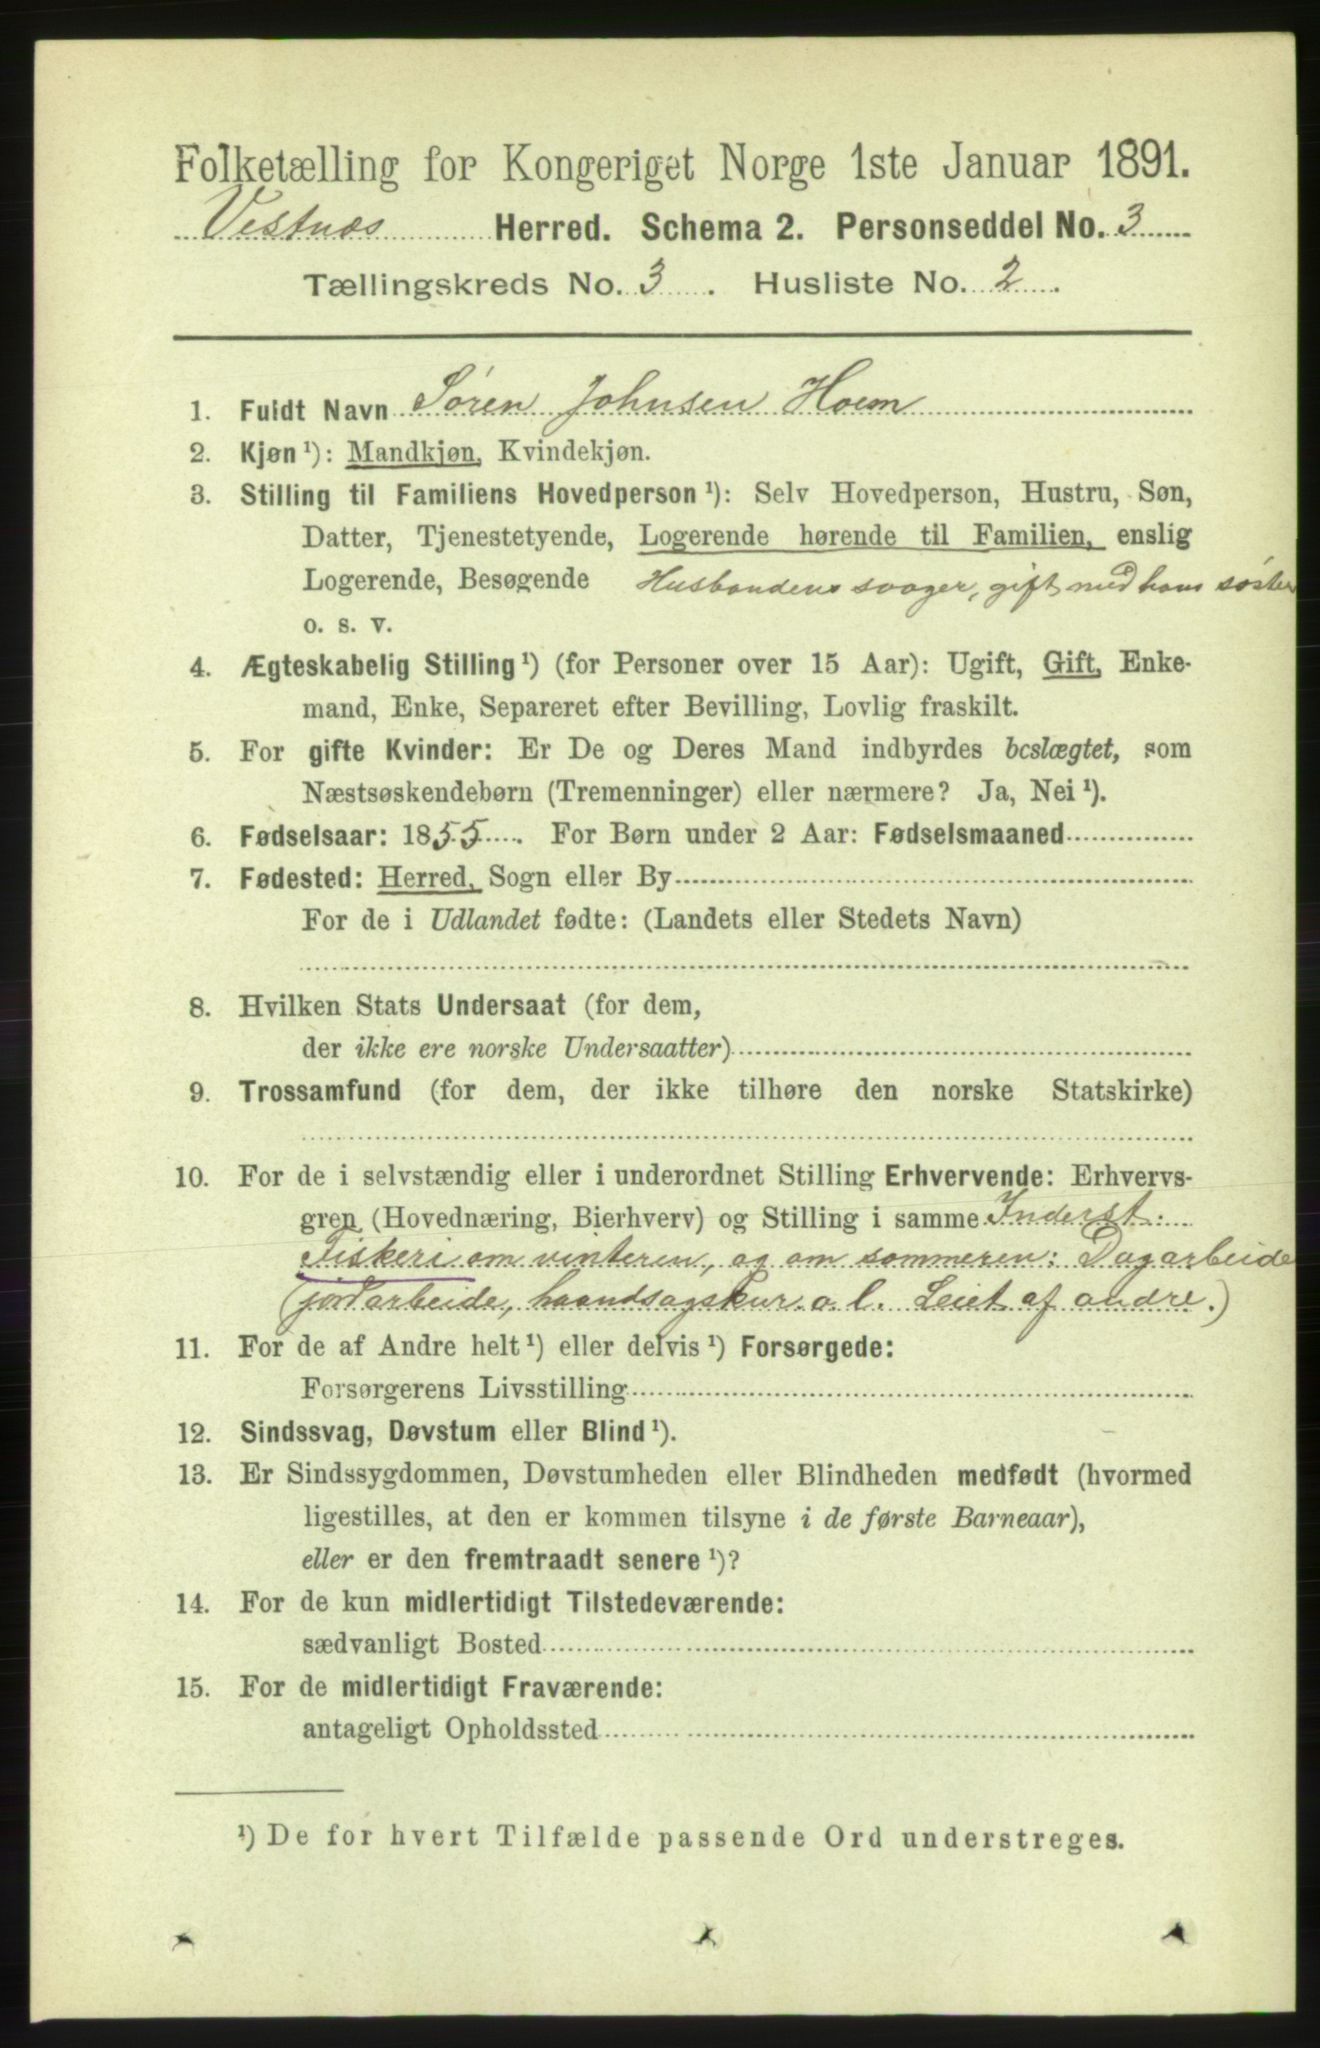 Folketælling for Kongeriget Norge 1ste Januar 1891.
Vestnæs Herred. Schema 2. Personseddel No. 3
Tællingskreds No. 3. Husliste No. 2.
1. Fuldt Navn Søren Johnsen Hoem
2. Kjøn ¹): Mandkjøn, Kvindekjøn.
3. Stilling til Familiens Hovedperson ¹): Selv Hovedperson, Hustru, Søn,
Datter, Tjenestetyende, Logerende hørende til Familien, enslig
Logerende, Besøgende Husbondens svoger, gift med hans søster
o. s. v.
4. Ægteskabelig Stilling ¹) (for Personer over 15 Aar): Ugift, Gift, Enke-
mand, Enke, Separeret efter Bevilling, Lovlig fraskilt.
5. For gifte Kvinder: Er De og Deres Mand indbyrdes beslægtet, som
Næstsøskendebørn (Tremenninger) eller nærmere? Ja, Nei ¹).
6. Fødselsaar: 1855. For Børn under 2 Aar: Fødselsmaaned
7. Fødested: Herred, Sogn eller By
For de i Udlandet fødte: (Landets eller Stedets Navn)
8. Hvilken Stats Undersaat (for dem,
der ikke ere norske Undersaatter)
9. Trossamfund (for dem, der ikke tilhøre den norske Statskirke)
10. For de i selvstændig eller i underordnet Stilling Erhvervende: Erhvervs-
gren (Hovednæring, Bierhverv) og Stilling i samme Inderst:
Fiskeri om vinteren, og om sommeren: Dagarbeide
(jordarbeide, haandsagskur o. l. Leiet af andre.)
11. For de af Andre helt ¹) eller delvis ¹) Forsørgede:
Forsørgerens Livsstilling
12. Sindssvag, Døvstum eller Blind ¹).
13. Er Sindssygdommen, Døvstumheden eller Blindheden medfødt (hvormed
ligestilles, at den er kommen tilsyne i de første Barneaar),
eller er den fremtraadt senere ¹)?
14. For de kun midlertidigt Tilstedeværende:
sædvanligt Bosted
15. For de midlertidigt Fraværende:
antageligt Opholdssted
¹) De for hvert Tilfælde passende Ord understreges.